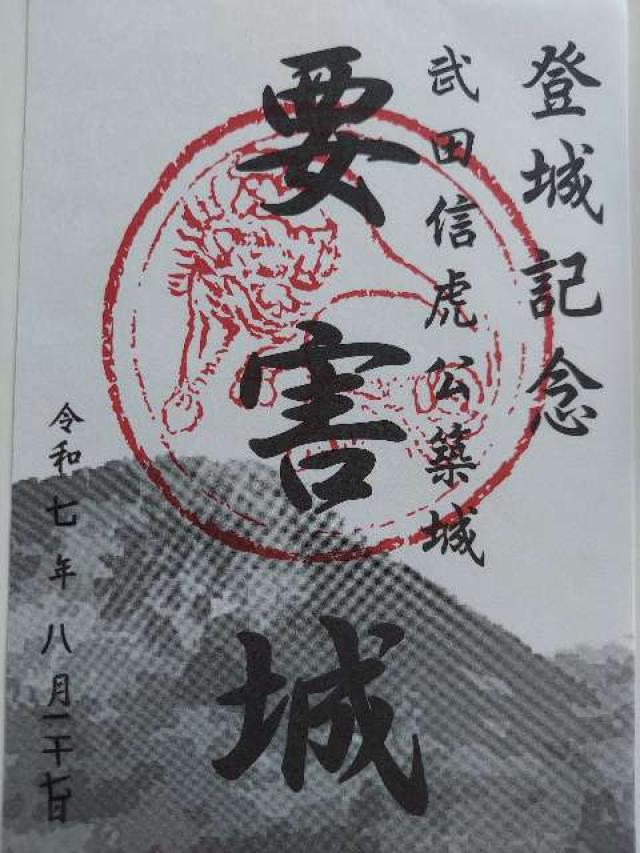 登城記念
武田信虎公築城
要害城
令和七年八月二十七日